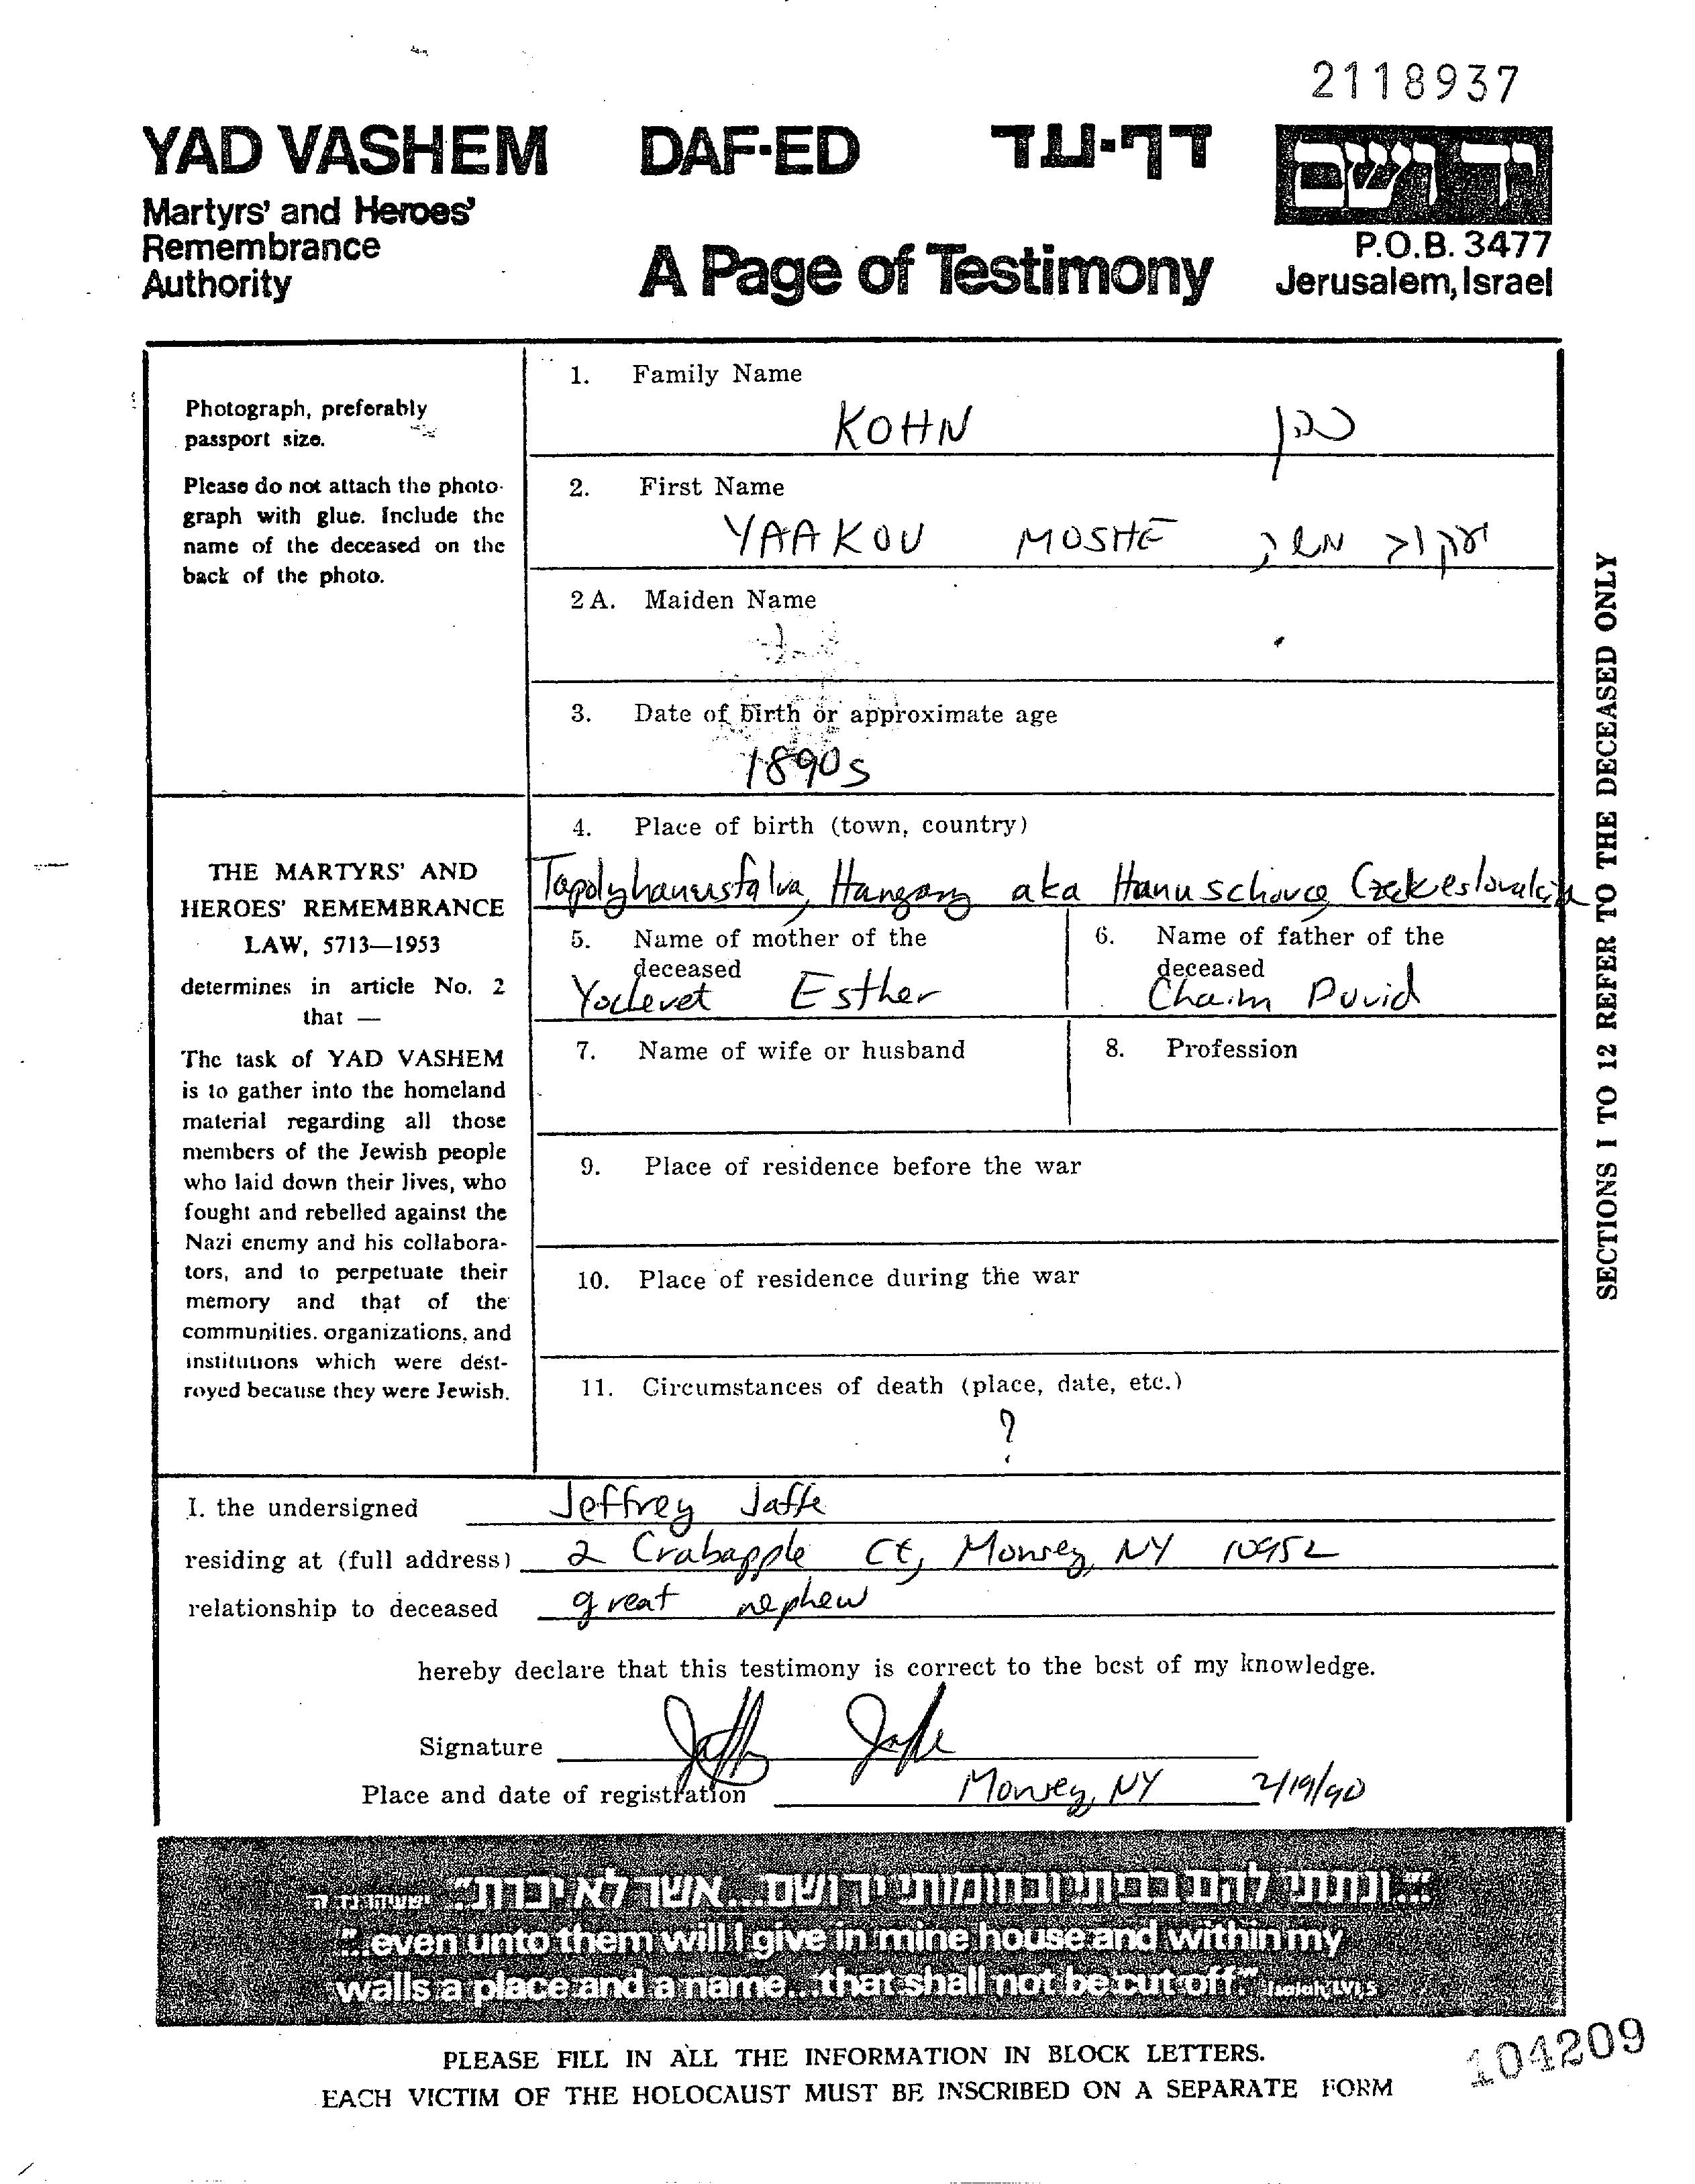 2118937
YAD VASHEM DAF-ED דף-עד יד ושם
Martyrs' and Heroes'
Remembrance
Authority
A Page of Testimony
P.O.B. 3477
Jerusalem, Israel
Photograph, preferably
passport size.
Please do not attach the photo-
graph with glue. Include the
name of the deceased on the
back of the photo.
THE MARTYRS' AND
HEROES' REMEMBRANCE
LAW, 5713—1953
determines in article No. 2
that —
The task of YAD VASHEM
is to gather into the homeland
material regarding all those
members of the Jewish people
who laid down their lives, who
fought and rebelled against the
Nazi enemy and his collabora-
tors, and to perpetuate their
memory and that of the
communities, organizations, and
institutions which were dest-
royed because they were Jewish.
1. Family Name
KOHN כהן
2. First Name
YAAKOV MOSHE יעקוב משה
2A. Maiden Name
3. Date of birth or approximate age
1890s
4. Place of birth (town, country)
Tapolyhanusfalva, Hungary aka Hanuschovce Czekeslovakia
5. Name of mother of the
deceased
Yochevet Esther
6. Name of father of the
deceased
Chaim Duvid
7. Name of wife or husband
8. Profession
9. Place of residence before the war
10. Place of residence during the war
11. Circumstances of death (place, date, etc.)
?
SECTIONS 1 TO 12 REFER TO THE DECEASED ONLY
I. the undersigned Jeffrey Jaffe
residing at (full address) 2 Crabapple Ct, Monsey, NY 10952
relationship to deceased great nephew
hereby declare that this testimony is correct to the best of my knowledge.
Signature Jeffrey Jaffe
Place and date of registration Monsey, NY 2/19/90
"...ונתתי להם בביתי ובחומותי יד ושם...אשר לא יכרת" ישעיהו נו, ה
"...even unto them will I give in mine house and within my
walls a place and a name...that shall not be cut off." Isaiah, LVI, 5
PLEASE FILL IN ALL THE INFORMATION IN BLOCK LETTERS.
EACH VICTIM OF THE HOLOCAUST MUST BE INSCRIBED ON A SEPARATE FORM
104209